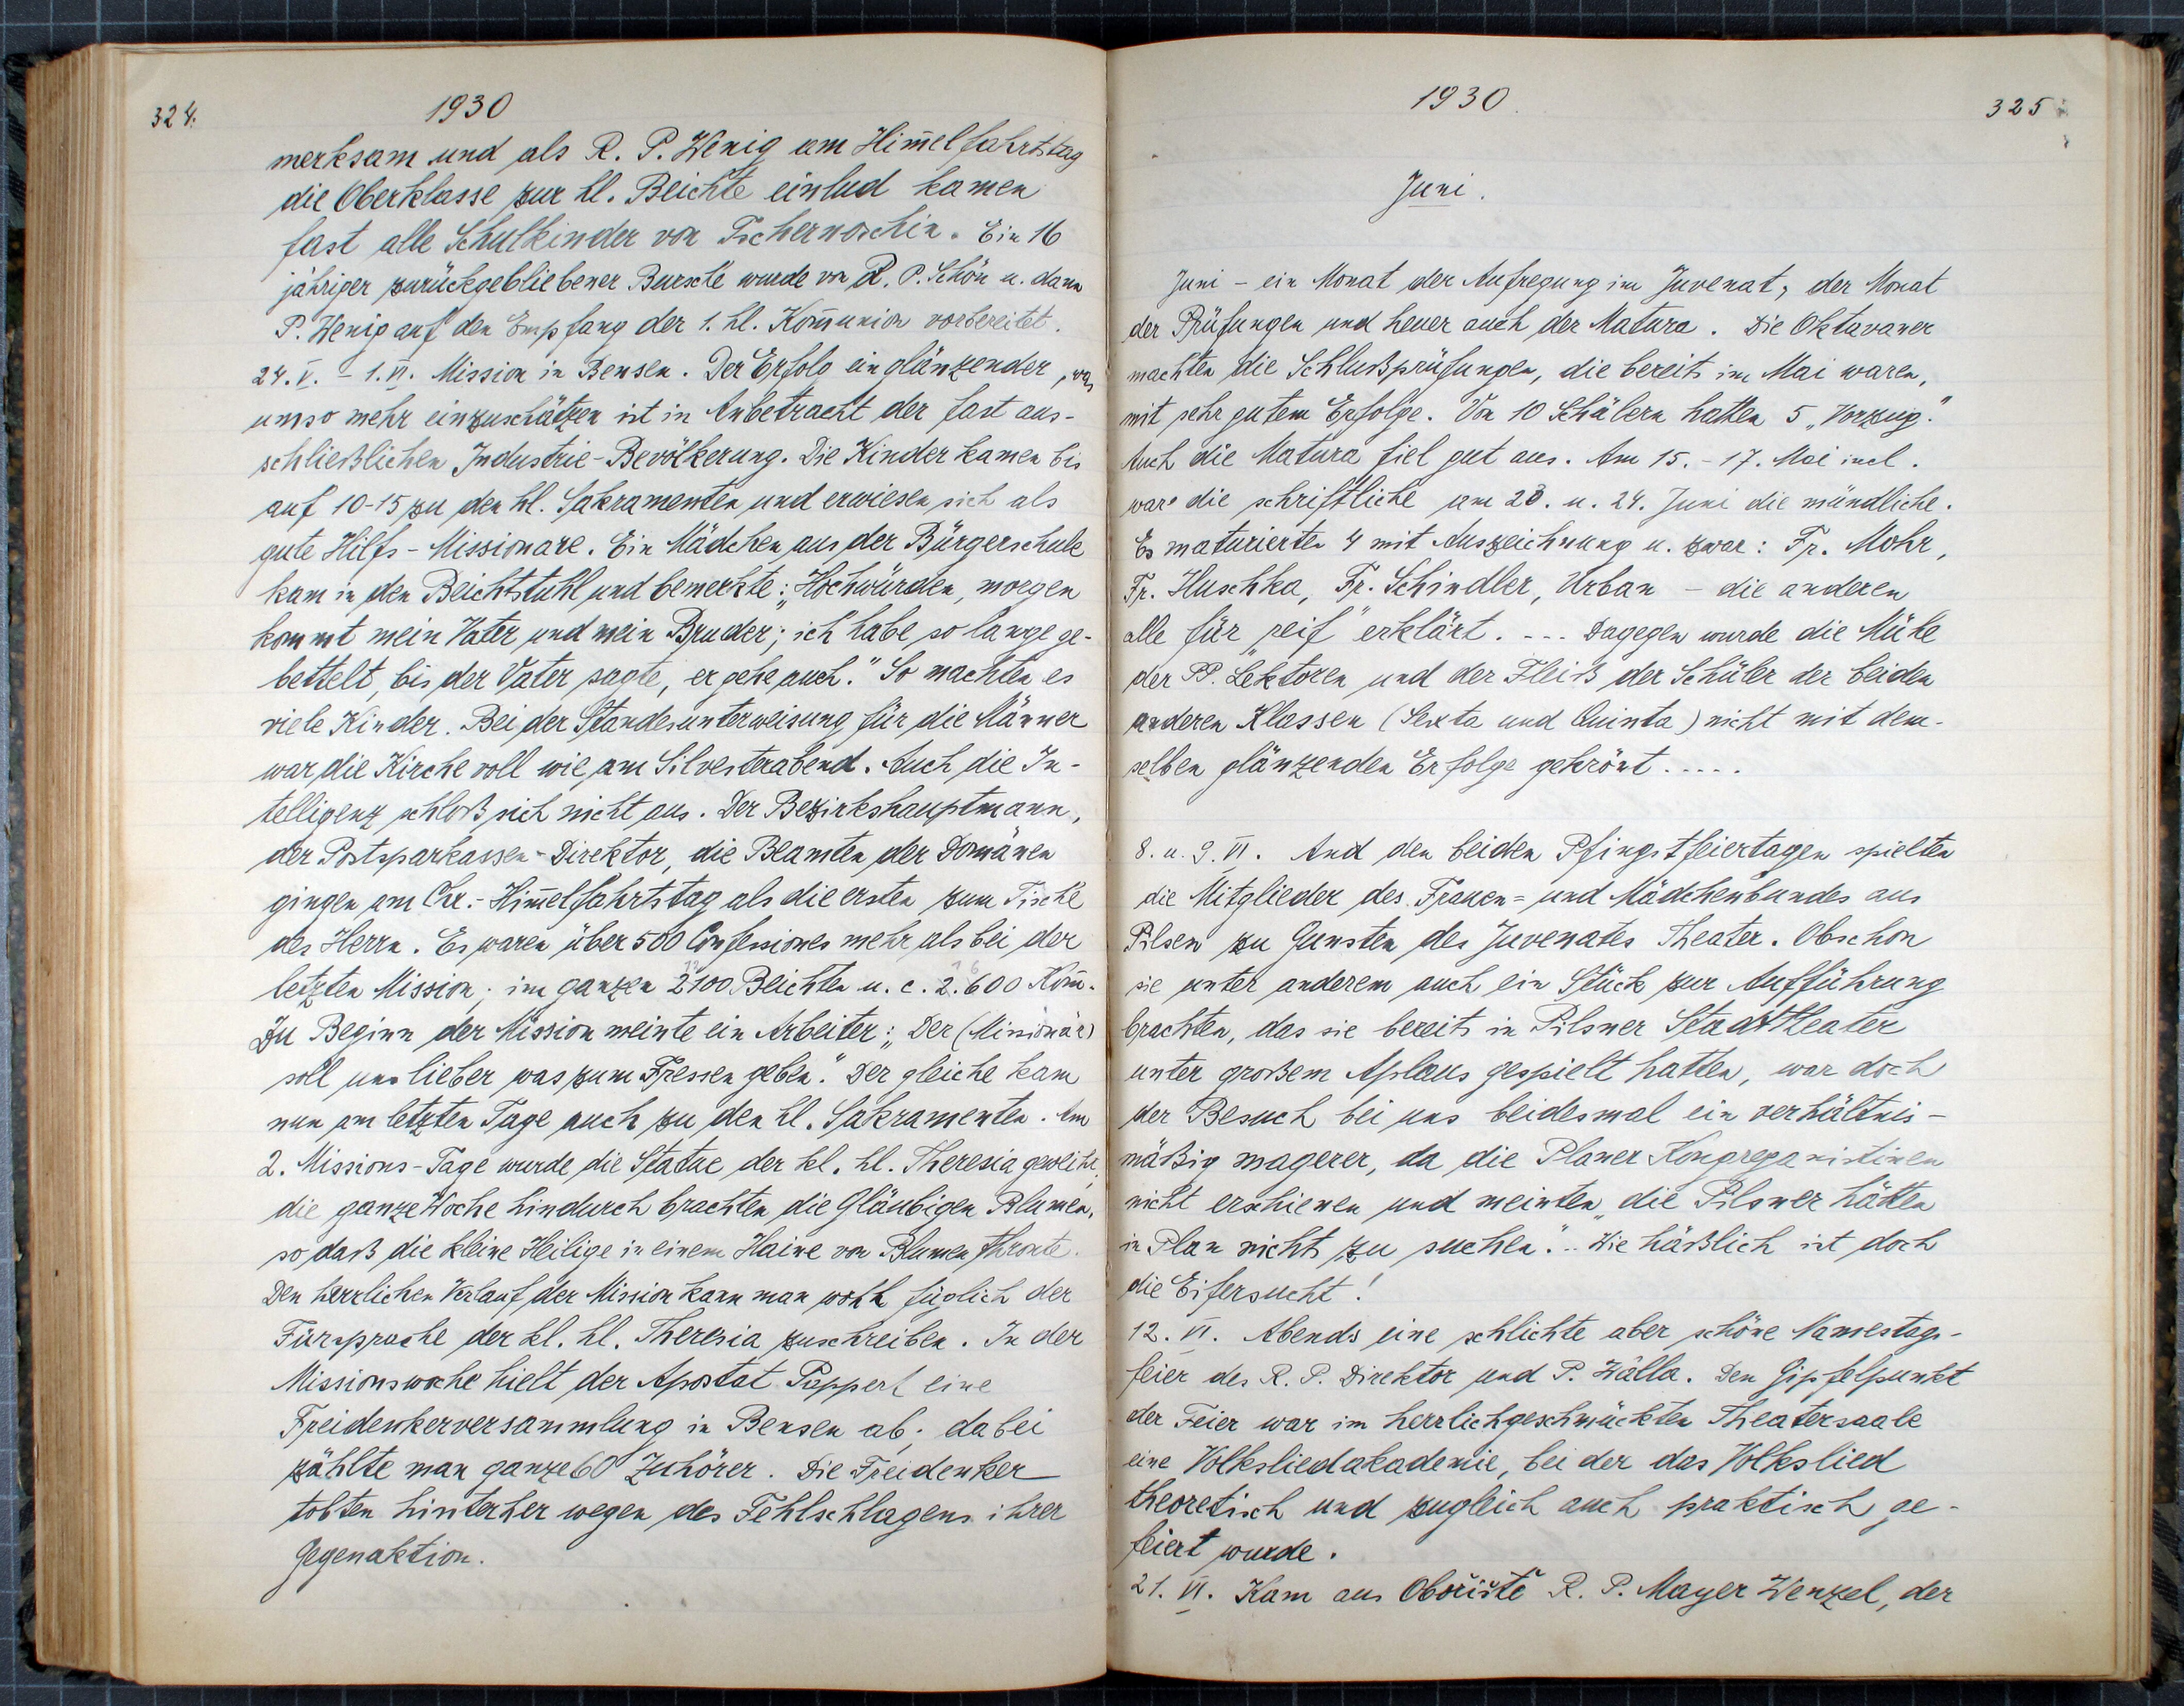 324.
1930
merksam und als R. P. Wenig am Him̅elfahrtstag
die Oberklasse zur hl. Beichte einlud kamen
fast alle Schulkinder von Tschernoschin. Ein 16
jähriger zurückgebliebener Bursche wurde von R. P. Schön u. dann
P. Wenig auf den Empfang der 1. hl. Kom̅union vorbereitet.
24. V. - 1. VI. Mission in Bensen. Der Erfolg ein glänzender, was
umso mehr einzuschätzen ist in Anbetracht der fast aus-
schließlichen Industrie-Bevölkerung. Die Kinder kamen bis
auf 10-15 zu den hl. Sakramenten und erwiesen sich als
gute Hilfs-Missionare. Ein Mädchen aus der Bürgerschule
kam in den Beichtstuhl und bemerkte: „Hochwürden, morgen
kommt mein Vater und mein Bruder; ich habe so lange ge-
bettelt, bis der Vater sagte, er gehe auch." So machten es
viele Kinder. Bei der Standesunterweisung für die Männer
war die Kirche voll wie am Silvesterabend. Auch die In-
telligenz schloß sich nicht aus. Der Bezirkshauptmann,
der Postsparkassen-Direktor, die Beamten der Domänen
gingen am Chr.-Him̅elfahrtstag als die ersten zum Tische
des Herrn. Es waren über 500 Confessiones mehr als bei der
letzten Mission; im ganzen 2100 Beichten u. c. 2.600 Kom̅.
Zu Beginn der Mission meinte ein Arbeiter: „Der (Missionär)
soll uns lieber was zum Fressen geben." Der gleiche kam
nun am letzten Tage auch zu den hl. Sakramenten. Am
2. Missions-Tage wurde die Statue der kl. hl. Theresia geweiht,
die ganze Woche hindurch brachten die Gläubigen Blumen,
so daß die kleine Heilige in einem Haine von Blumen thronte.
Den herrlichen Verlauf der Mission kann man wohl füglich der
Fürsprache der kl. hl. Theresia zuschreiben. In der
Missionswoche hielt der Apostat Poppert eine
Freidenkerversammlung in Bensen ab; dabei
zählte man ganze 60 Zuhörer. Die Freidenker
tobten hinterher wegen des Fehlschlagens ihrer
Gegenaktion.
1930.
325
Juni.
Juni - ein Monat der Aufregung im Juvenat, der Monat
der Prüfungen und heuer auch der Matura. Die Oktavaner
machten die Schlußprüfungen, die bereits im Mai waren,
mit sehr gutem Erfolge. Von 10 Schülern hatten 5 „Vorzug."
Auch die Matura fiel gut aus. Am 15. - 17. Mai incl.
war die schriftliche am 23. u. 24. Juni die mündliche.
Es maturierten 4 mit Auszeichnung u. zwar: Fr. Mohr,
Fr. Huschka, Fr. Schindler, Urban - die anderen
alle für „reif" erklärt. --- Dagegen wurde die Mühe
der PP. Lektoren und der Fleiß der Schüler der beiden
anderen Klassen (Sexta und Quinta) nicht mit dem-
selben glänzenden Erfolge gekrönt.....
8. u. 9. VI. And den beiden Pfingstfeiertagen spielten
die Mitglieder des Frauen= und Mädchenbundes aus
Pilsen zu Gunsten des Juvenates Theater. Obschon
sie unter anderem auch ein Stück zur Aufführung
brachten, das sie bereits in Pilsner Stadttheater
unter großem Aplaus gespielt hatten, war doch
der Besuch bei uns beidesmal ein verhältnis-
mäßig magerer, da die Planer Kongreganistinen
nicht erschienen und meinten „die Pilsner hätten
in Plan nichts zu suchen." .. Wie häßlich ist doch
die Eifersucht!
12. VI. Abends eine schlichte aber schöne Namestags-
feier des R. P. Direktor und P. Zálla. Den Gipfelpunkt
der Feier war im herrlichgeschmückten Theatersaale
eine Volksliedakademie, bei der das Volkslied
theoretisch und zugleich auch praktisch ge-
feiert wurde.
21. VI. Kam aus Obořiště R. P. Mayer Wenzel, der